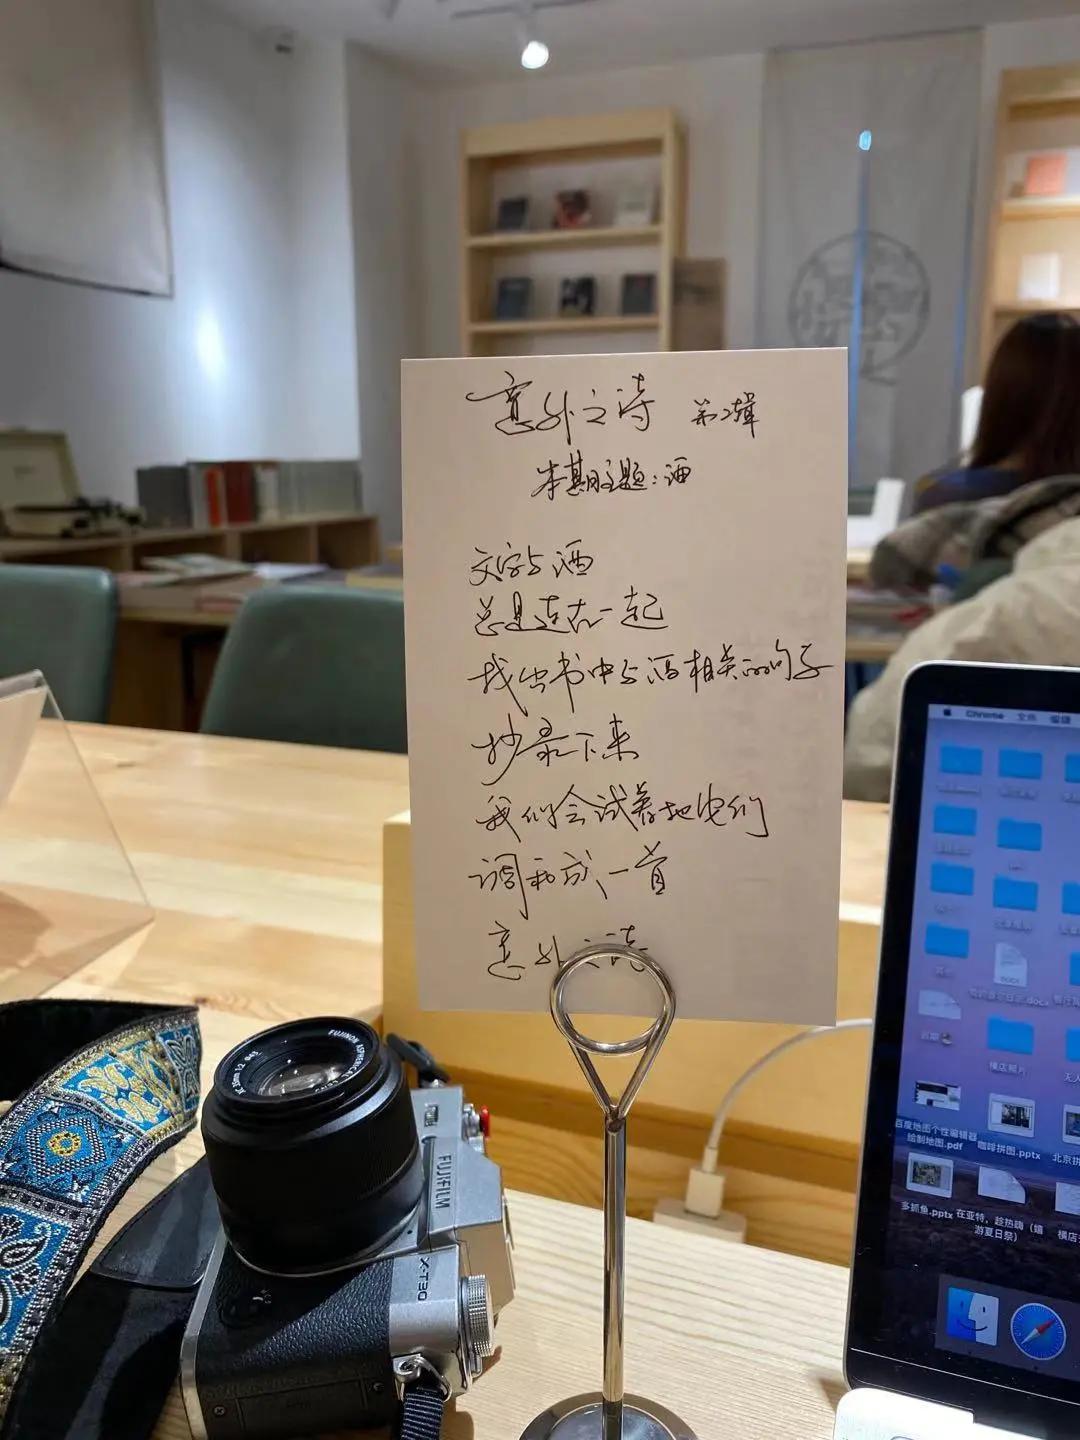 意外之诗 第2辑
本期主题：酒
文字与酒
总是连在一起
找出书中与酒相关的句子
抄录下来
我们会试着把它们
调和成一首
意外之诗
FUJINON ASPHERICAL
FUJIFILM
X-T30
Chrome 文件 编辑
DOCX
横店照片
百度地图个性编辑器
绘制地图.pdf
咖啡拼图.pptx
多抓鱼.pptx
在亚特，趁热嗨（嬉
游夏日祭）